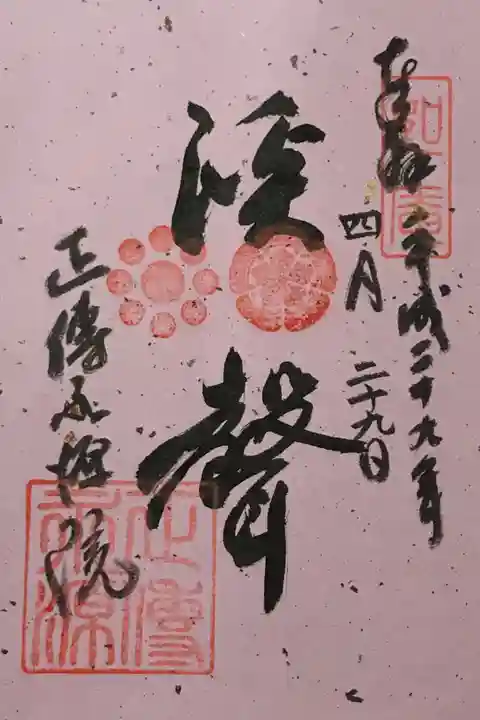 奉拝
平成二十九年
四月二十九日
渓聲
正傳永源院
如庵
正傳永源